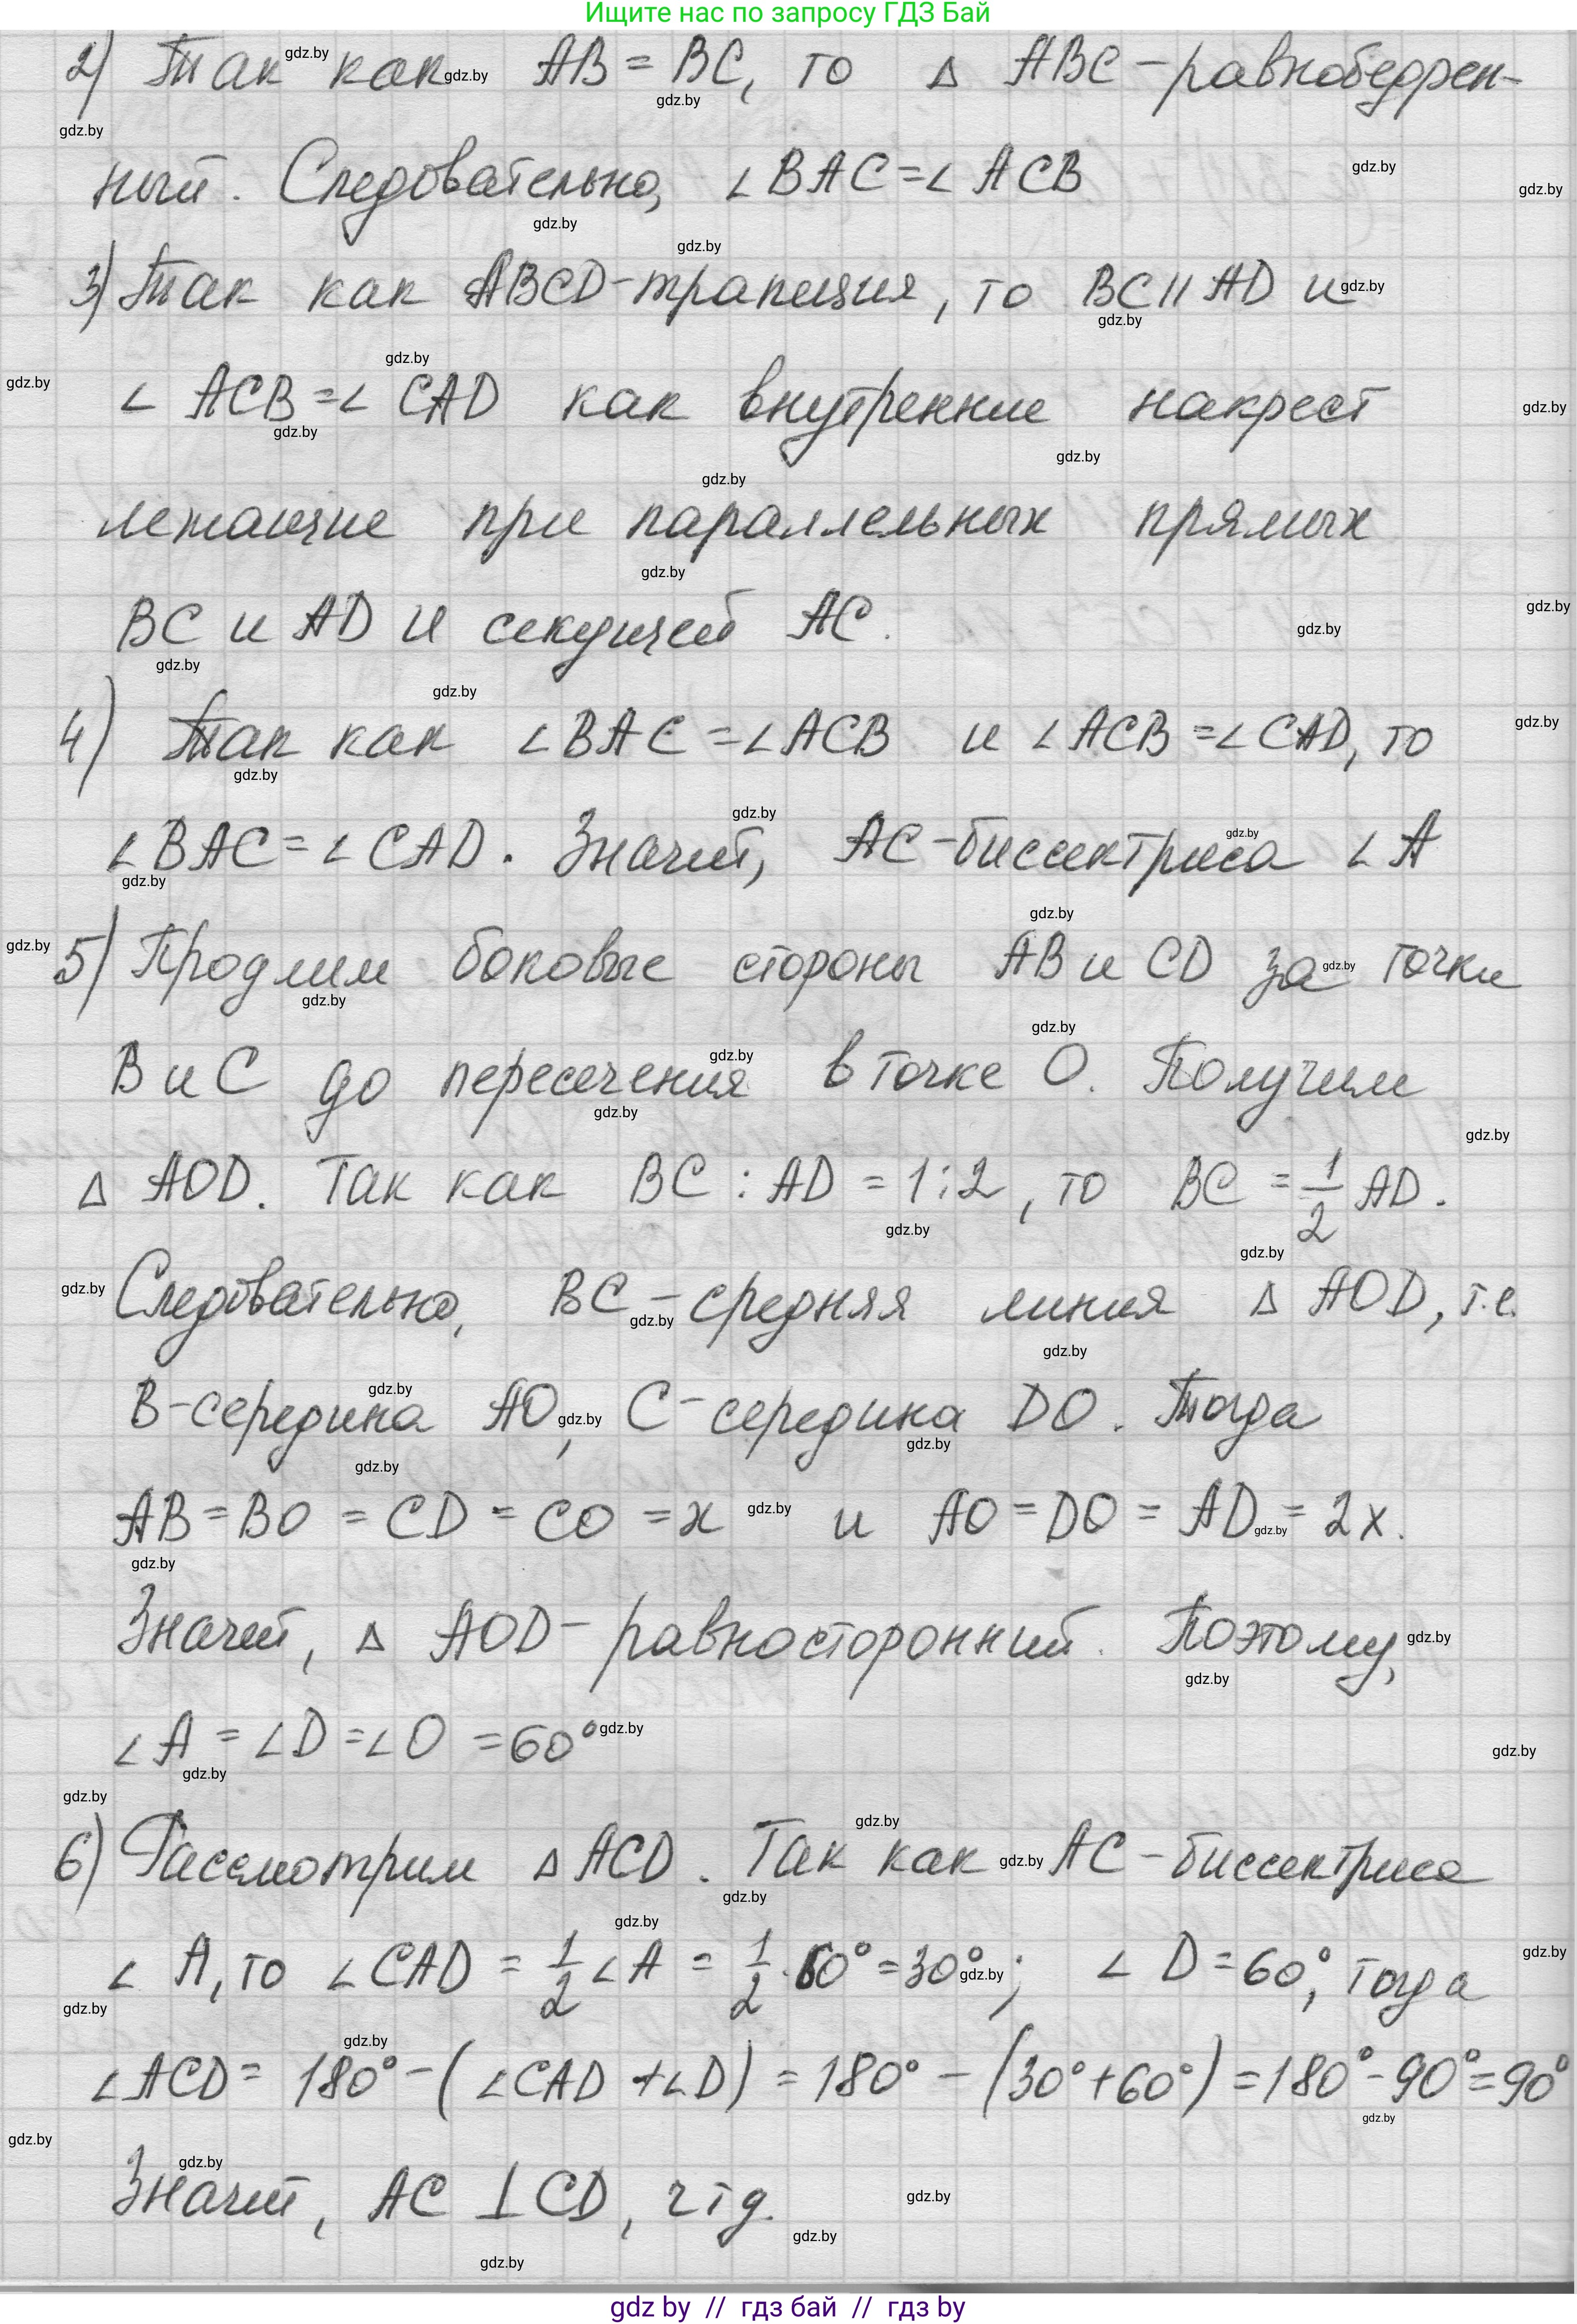 Ищите нас по запросу ГДЗ Бай
2) Так как AB = BC, то Δ ABC - равнобедрен-
ный. Следовательно, ∠BAC = ∠ACB
3) Так как ABCD - трапеция, то BC || AD и
∠ ACB = ∠ CAD как внутренние накрест
лежащие при параллельных прямых
BC и AD и секущей AC.
4) Так как ∠BAC = ∠ACB и ∠ACB = ∠CAD, то
∠BAC = ∠CAD. Значит, AC - биссектриса ∠A
5) Продлим боковые стороны AB и CD за точки
B и C до пересечения в точке O. Получим
Δ AOD. Так как BC : AD = 1 : 2, то BC = 1/2 AD.
Следовательно, BC - средняя линия Δ AOD, т.е.
B - середина AO, C - середина DO. Тогда
AB = BO = CD = CO = x и AO = DO = AD = 2x.
Значит, Δ AOD - равносторонний. Поэтому,
∠A = ∠D = ∠O = 60°
6) Рассмотрим Δ ACD. Так как AC - биссектриса
∠ A, то ∠CAD = 1/2 ∠A = 1/2 · 60° = 30°; ∠ D = 60°, тогда
∠ACD = 180° - (∠CAD + ∠D) = 180° - (30° + 60°) = 180° - 90° = 90°
Значит, AC ⊥ CD, чтд.
gdz by // гдз бай // гдз by